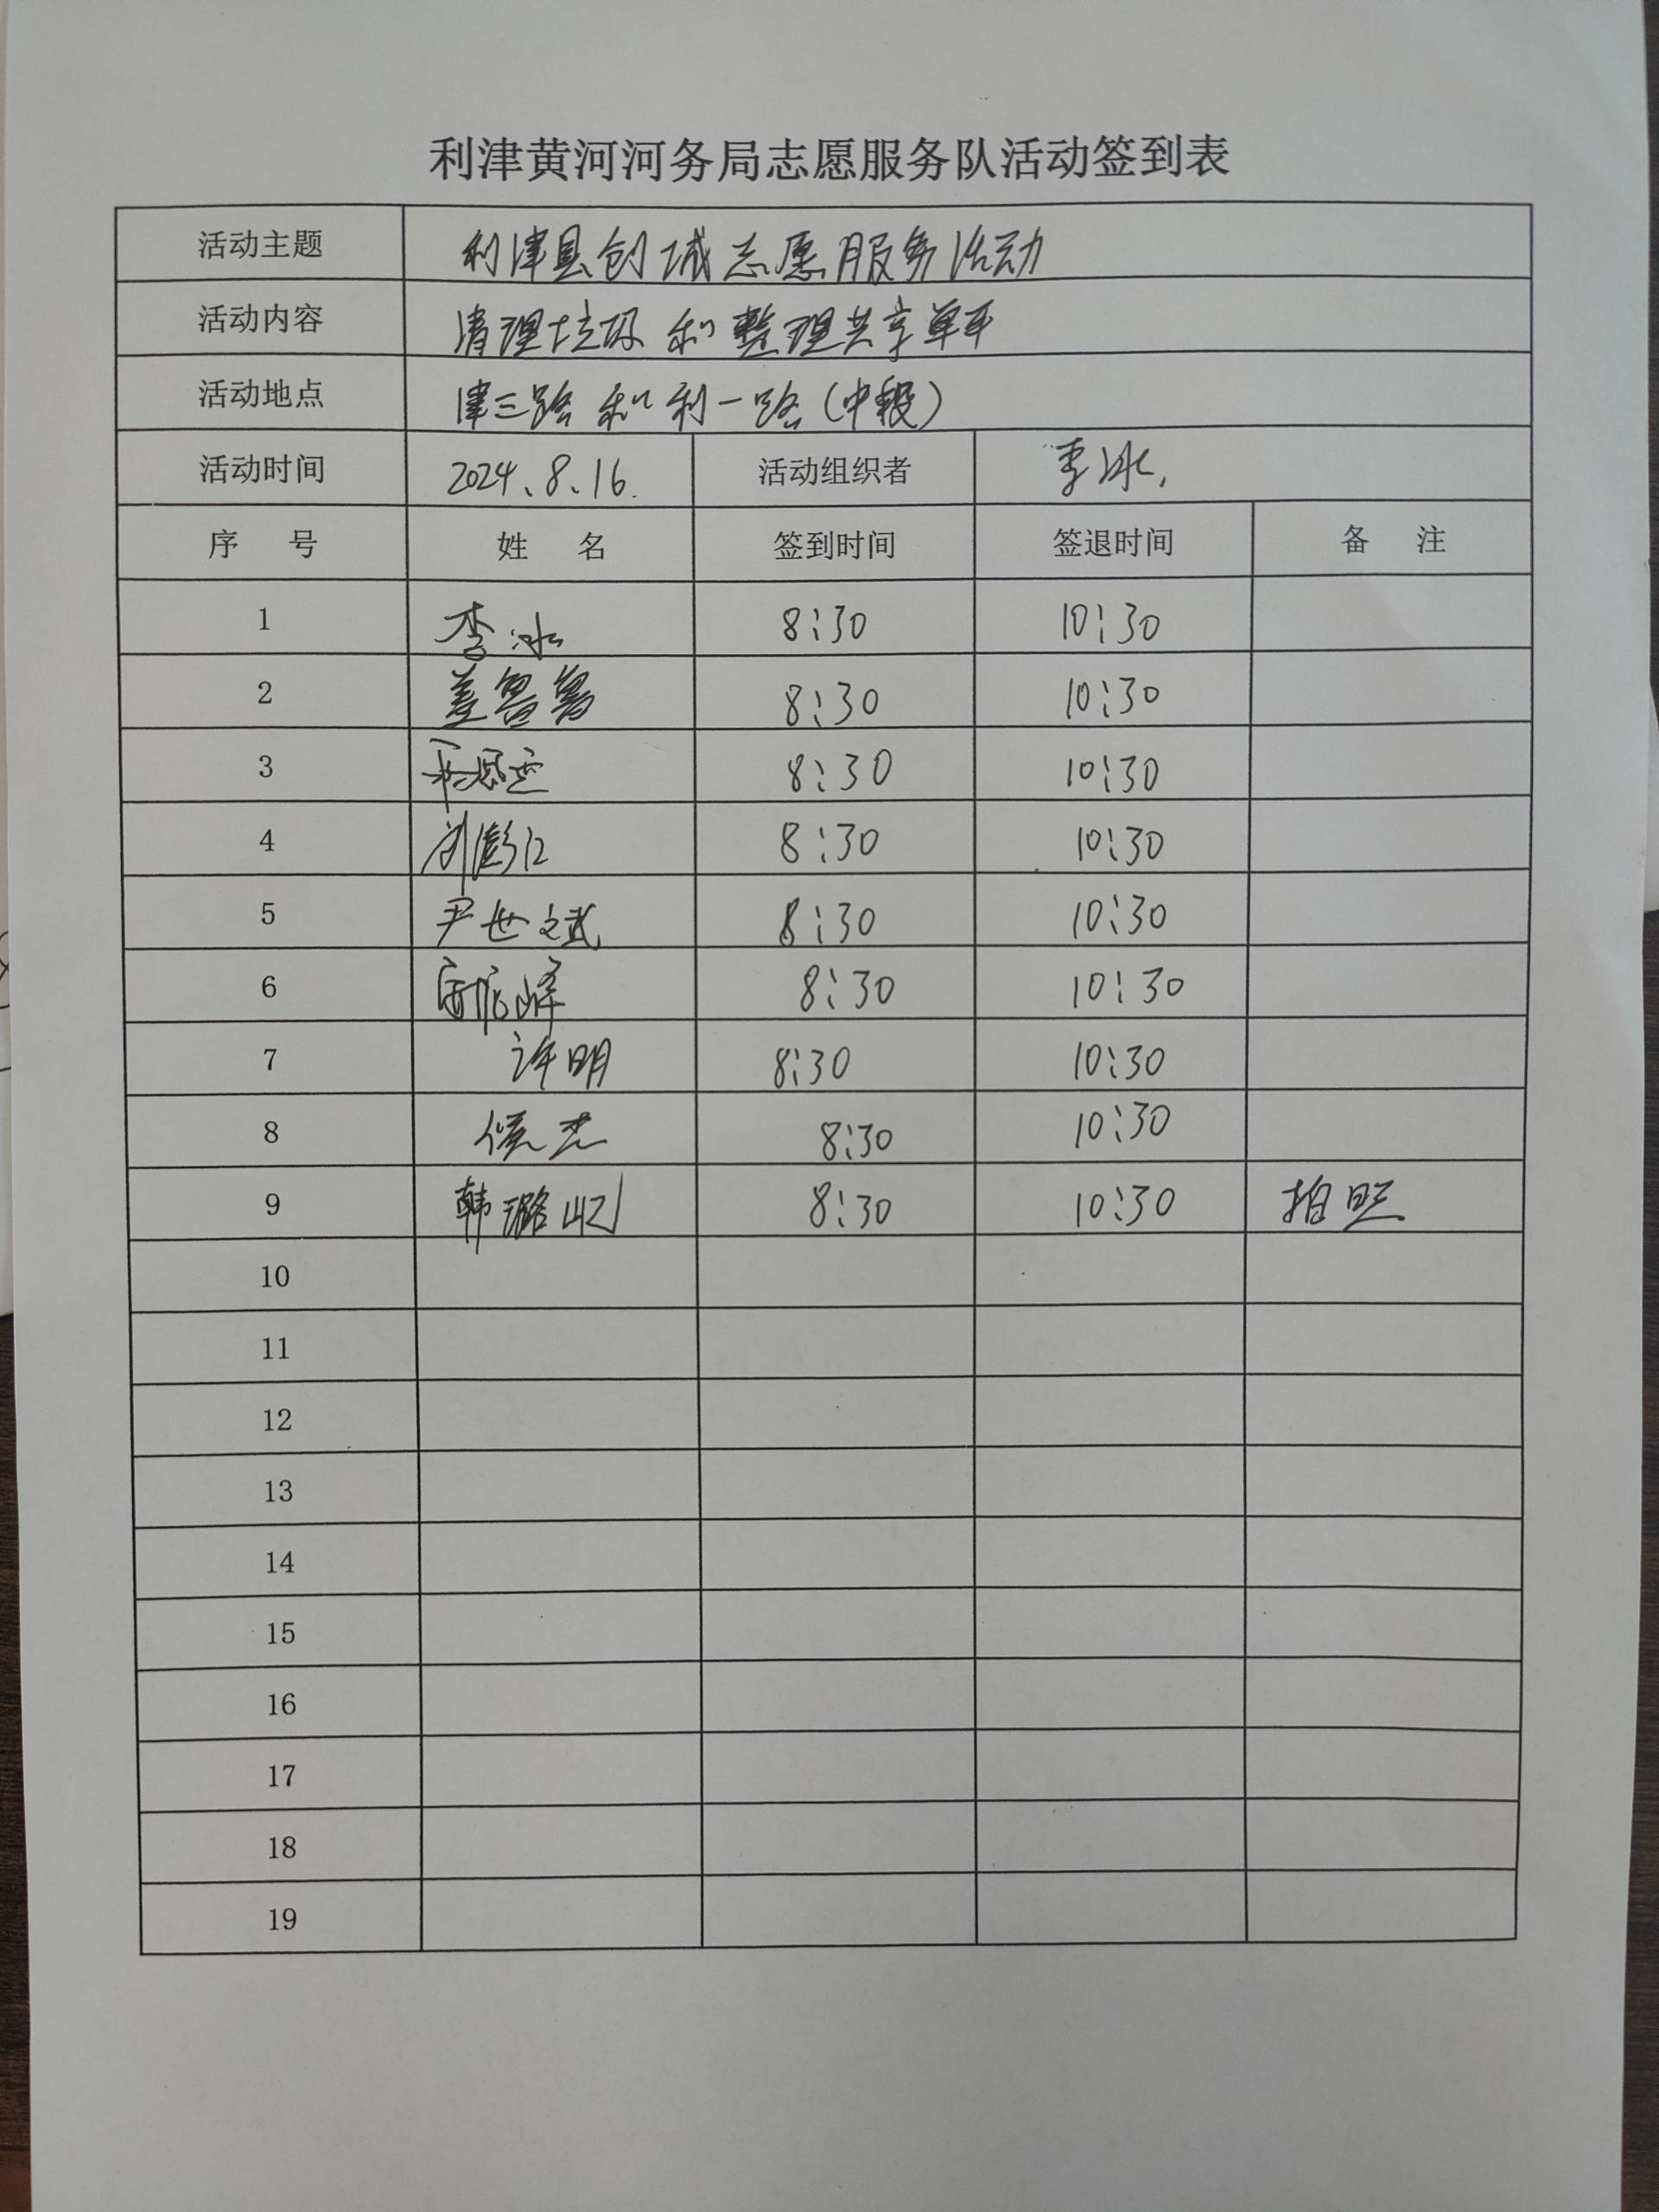 利津黄河河务局志愿服务队活动签到表
活动主题 利津县创城志愿服务活动
活动内容 清理垃圾和整理共享单车
活动地点 津三路和利一路(中段)
活动时间 2024、8、16. 活动组织者 李冰
序 号 姓 名 签到时间 签退时间 备 注
1 李冰 8:30 10:30
2 8:30 10:30
3 8:30 10:30
4 8:30 10:30
5 尹世斌 8:30 10:30
6 8:30 10:30
7 许明 8:30 10:30
8 侯杰 8:30 10:30
9 韩璐 8:30 10:30 拍照
10
11
12
13
14
15
16
17
18
19